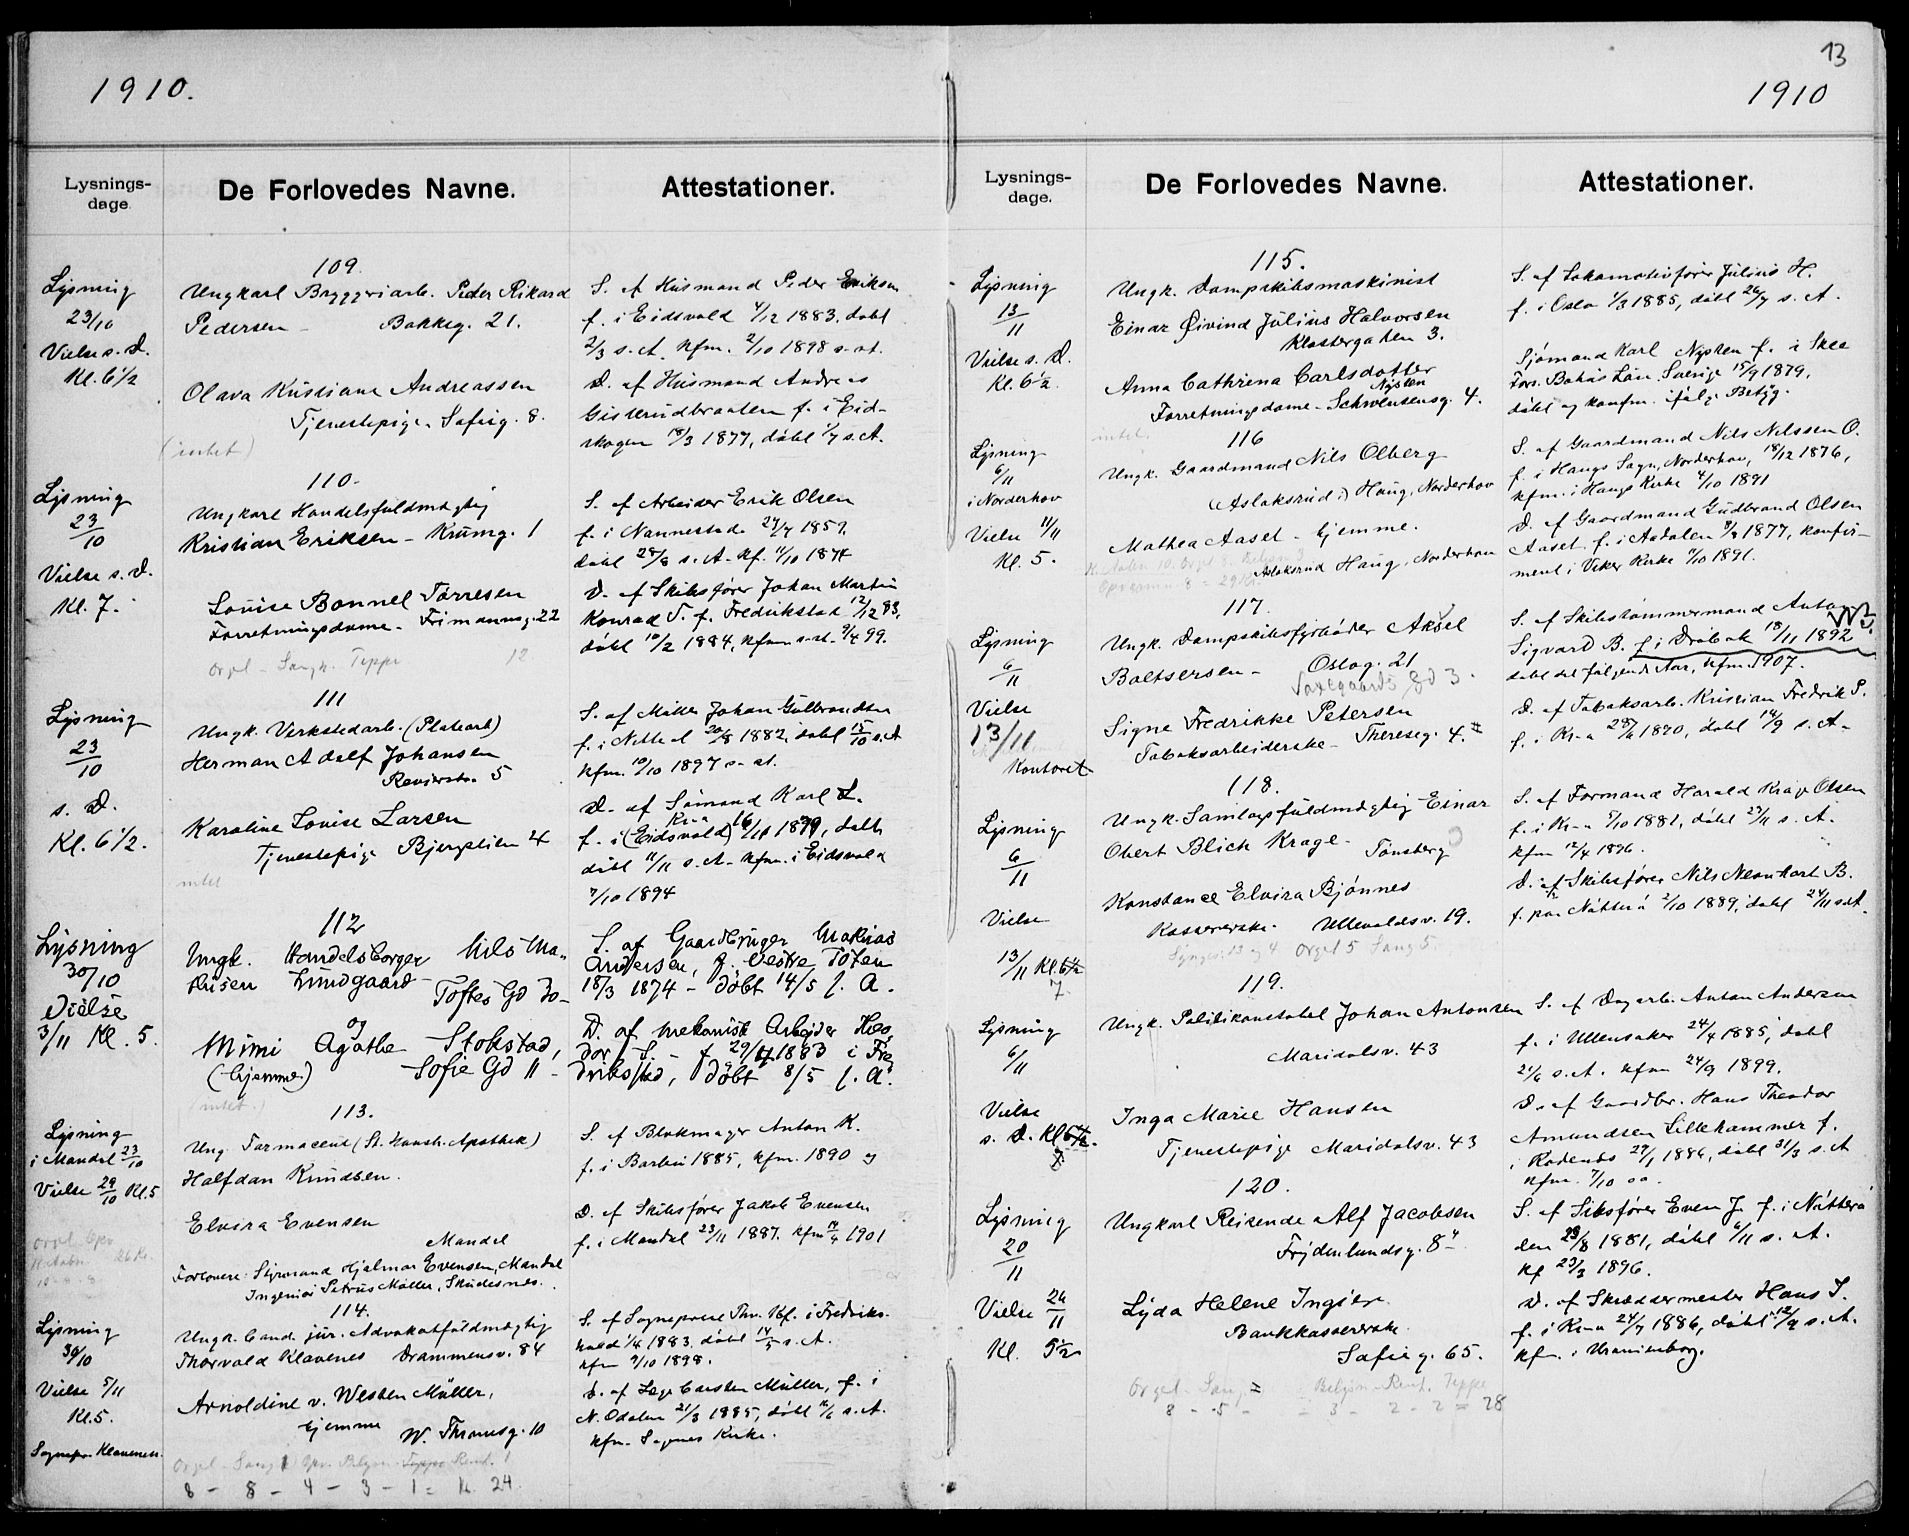 1910.
Lysnings-
dage.
De Forlovedes Navne.
Attestationer.
109.
Lysning
23/10
Vielse s. D.
Kl. 6 1/2
Ungkarl Bryggeriarb. Peder Rikard
Pedersen - Bakkeg. 21.
Olava Kristiane Andreassen
Tjenestepige. Sofieg. 8.
(intet)
S. af Husmand Peder Eriksen
f. i Eidsvold 4/12 1883, døbt
2/3 s. A. kfm. 2/10 1898 s. st.
D. af Husmand Andreas
Gisterudbraaten f. i Eid-
skogen 18/3 1877, døbt 1/7 s. A.
110.
Lysning
23/10
Vielse s. D.
Kl. 7.
Ungkarl Handelsfuldmægtig
Kristian Eriksen - Krumg. 1
Louise Bonnel Tørresen
Forretningsdame. Frimannsg. 22
Orgel - Sang. Teppe 12
S. af Arbeider Erik Olsen
f. i Nannestad 27/7 1859,
døbt 28/8 s. A. kf. 11/10 1874
D. af Skibsfører Johan Martin
Konrad T. f. Fredrikstad 12/12 83,
døbt 10/2 1884, kfm. s. st. 9/4 99.
111
Lysning
23/10
s. D.
Kl. 6 1/2.
Ungk. Verkstedarb. (Platearb)
Herman Adolf Johansen
Revierstr. 5
Karoline Louise Larsen
Tjenestepige Bjergstien 4
intet
S. af Møller Johan Gulbrandsen
f. i Nittedal 20/8 1882, døbt 15/10 s. A
kfm. 10/10 1897 s. st.
D. af Sømand Karl L.
Kr.a
f. i (Eidsvold) 16/11 1879, døbt
døbt 11/11 s. A. kfm. i Eidsvold
7/10 1894
112
Lysning
30/10
Vielse
3/11 Kl. 5.
Ungk. Handelsborger Nils Ma-
thisen Lundgaard -
Toftes Gd 30 -
og
Mimi Agathe Stokstad,
(hjemme.) Sofie Gd 11 -
(intet.)
S. af Gaardbruger Mathias
Andersen, f. Vestre Toten
18/3 1874 - døbt 14/5 s. A.
D. af mekanisk Arbeider
dor S. - f 29/4 1883 i Fre
drikstad, døbt 8/5 s. A.
113.
Lysning
i Mandal 23/10
Vielse 29/10 Kl. 5
Ung. Farmaceut (St. Hansh. Apothek)
Halfdan Knudsen.
Elvira Evensen
Mandal
Forlovere: Styrmand Hjalmar Evensen, Mandal
Ingeniør Petrus Møller, Skudesnes.
S. af Blokmager Anton K.
f. i Barbu 1885, kfm. 1890 og
D. af Skibsfører Jakob Evensen
f. i Mandal 23/11 1887. kfm 14/4 1901
114.
Lysning
30/10
Vielse 5/11
Kl. 5.
Sognepr. Klavenes.
Ungk. Cand. jur. Advokatfuldmægtig
Thorvald Klavenes Drammensv. 84
Arnoldine v. Westen Müller,
hjemme W. Thranesg. 10
Orgel - Sang
8 - 8 - 4 - 3 - 1 = Kr. 24.
S. af Sogneprest Thv. Kl. f. i Fredriks-
hald 1/4 1883, døbt 14/5 s. A.
kfm 9/10 1898.
D. af Læge Carsten Müller, f. i
N. Odalen 21/3 1885, døbt 14/6 s. A.
kfm. Sagenes Kirke.
13
1910
Lysnings-
dage.
De Forlovedes Navne.
Attestationer.
115.
Lysning
13/11
Vielse s. D.
Kl. 6 1/2.
Ungk. Dampskibsmaskinist
Einar Øivind Julius Halvorsen
Klostergaten 3.
Anna Cathrina Carlsdotter
Nysten
Forretningsdame - Schwensensg. 4.
intet
S. af Lokomotivfører Julius H.
f. i Oslo 1/3 1885, døbt 26/7 s. A.
Sjømand Karl Nysten f. i Skee
Fors. Bohus Län, Sverige 15/9 1879,
døbt og konfm. ifølge Betyg.
116
Lysning
6/11
i Norderhov
Vielse 11/11
Kl. 5.
Ungk. Gaardmand Nils Olberg
(Aslaksrud i) Haug, Norderhov
Mathea Aaset - hjemme.
Aslaksrud Haug, Norderhov
S. af Gaardmand Nils Nilssen O.
f. i Haugs Sogn, Norderhov, 18/12 1876,
kfm. i Haugs Kirke 4/10 1891
D. af Gaardmand Gudbrand Olsen
Aaset f. i Aadalen 9/8 1877, konfir-
meret i Viker Kirke 11/10 1891.
117.
Lysning
6/11
Vielse
13/11
Kontoret
Ungk. Dampskibsfyrbøder Aksel
Baltsersen - Oslog. 21
Signe Fredrikke Petersen
Tobaksarbeiderske - Thereseg. 4.
S. af Skibstømmermand Anton
Sigvard B. f i Drøbak 18/11 1892
døbt det følgende Aar, kfm. 1907.
D. af Tobaksarb. Kristian Fredrik P.
f. i Kr.a 29/6 1890, døbt 14/9 s. A.
118.
Lysning
6/11
Vielse
13/11 Kl. 6 1/2
7.
Ungk. Samlagsfuldmægtig Einar
Obert Blich Krage. Tønsberg
Konstance Elvira Bjønnes
Kassererske. Ullevoldsv. 19.
Orgel 5 Sang 5.
S. af Formand Harald Krage Olsen
f. i Kr.a 5/10 1881, døbt 27/11 s. A.
kfm 12/4 1896.
D. af Skibsfører Nils Neonhart B.
f. paa Nøtterø 2/10 1889, døbt 24/11 s. A.
119.
Lysning
6/11
Vielse
s. D. Kl. 6 1/2.
Ungk. Politikonstabel Johan Antonsen
Maridalsv. 43
Inga Marie Hansen
Tjenestepige Maridalsv. 43
S. af Dagarb. Anton Andersen
f. i Ullensaker 24/4 1885, døbt
21/6 s. A. kfm 24/9 1899.
D. af Gaardbr. Hans Theodor
Amundsen Lillehammer f.
i Rødenes 29/1 1886, døbt 31/3 s. A
kfm. 7/10 00.
120.
Lysning
20/11
Vielse 26/11
Kl. 5 1/2
Ungkarl Reisende Alf Jacobsen
Frydenlundsg. 8
Lyda Helene Ingier
Bankkassererske.
Sofieg. 65.
8 - 5 - = 3 - 2 - 2 = 28
S. af Skibsfører Even J. f. i Nøtterø
den 23/8 1881, døbt 6/11 s. A.
kf 29/3 1896.
D. af Skræddermester Hans I.
f. i Kr.a 24/7 1886, døbt 12/9 s. A.
kf. i Uranienborg.